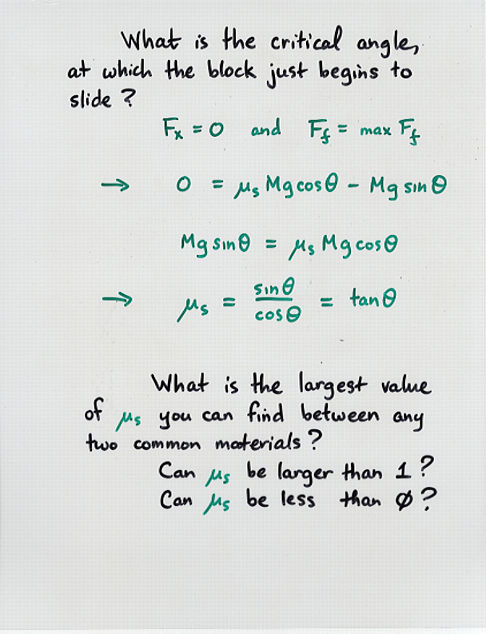 What is the critical angle,
at which the block just begins to
slide?
Fx = 0 and Ff = max Ff
→ 0 = μs Mg cos θ - Mg sin θ
Mg sin θ = μs Mg cos θ
→ μs = sin θ / cos θ = tan θ
What is the largest value
of μs you can find between any
two common materials?
Can μs be larger than 1?
Can μs be less than 0?